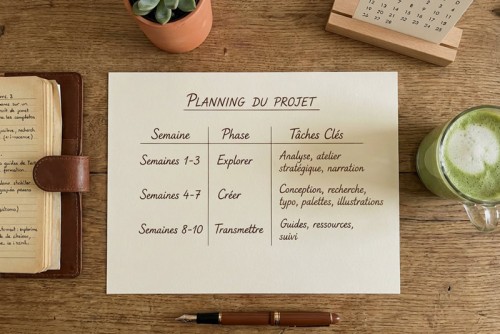 PLANNING DU PROJET
Semaine Phase Tâches Clés
Semaines 1-3 Explorer Analyse, atelier
stratégique, narration
Semaines 4-7 Créer Conception, recherche,
typo, palettes, illustrations
Semaines 8-10 Transmettre Guides, ressources,
suivi